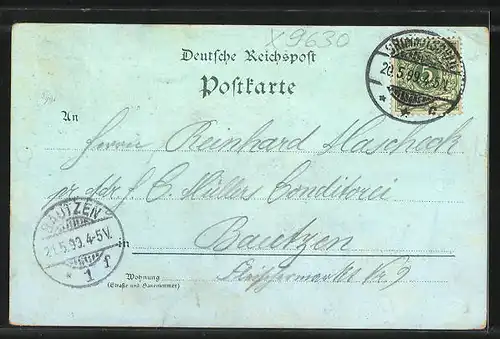 X9630
Deutsche Reichspost
Postkarte
An
Herrn Reinhard Hascheck
pr. Adr. f. C. Müllers Conditorei
in Bautzen
Fleischermarkt No 9
Wohnung
(Straße und Hausnummer)
20.5.99. 5-6V.
BAUTZEN
21.5.99. 4-5V.
* 1 f